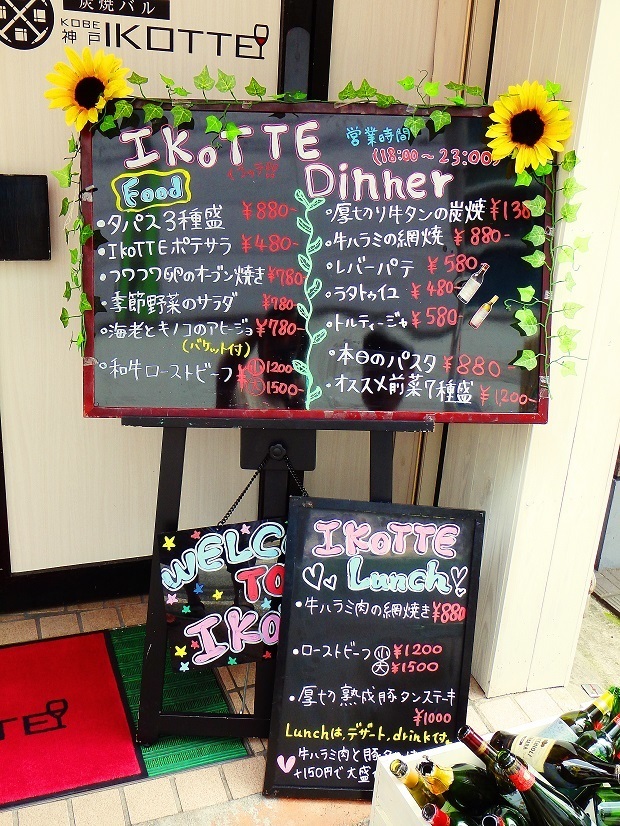 炭焼バル
KOBE
神戸 IKOTTE
IKoTTE
営業時間
(18:00~23:00)
Food
Dinner
・タパス3種盛 ¥880-
・IKoTTEポテサラ ¥480-
・フワフワ卵のオーブン焼き ¥780
・季節野菜のサラダ ¥780-
・海老とキノコのアヒージョ ¥780-
(バケット付)
・和牛ローストビーフ ¥ 小 1200
大 1500-
・厚切り牛タンの炭焼 ¥138
・牛ハラミの網焼 ¥880-
・レバーパテ ¥580
・ラタトゥイユ ¥480
・トルティージャ ¥580-
・本日のパスタ ¥880-
・オススメ前菜7種盛 ¥1,200-
WELC
TO
IKO
IKoTTE
Lunch
・牛ハラミ肉の網焼き ¥880
・ローストビーフ 小 ¥1200
大 ¥1500
・厚切熟成豚タンステーキ
¥1000
Lunchは、デザート,drink付
牛ハラミ肉と豚タン
+150円で大盛
TTE